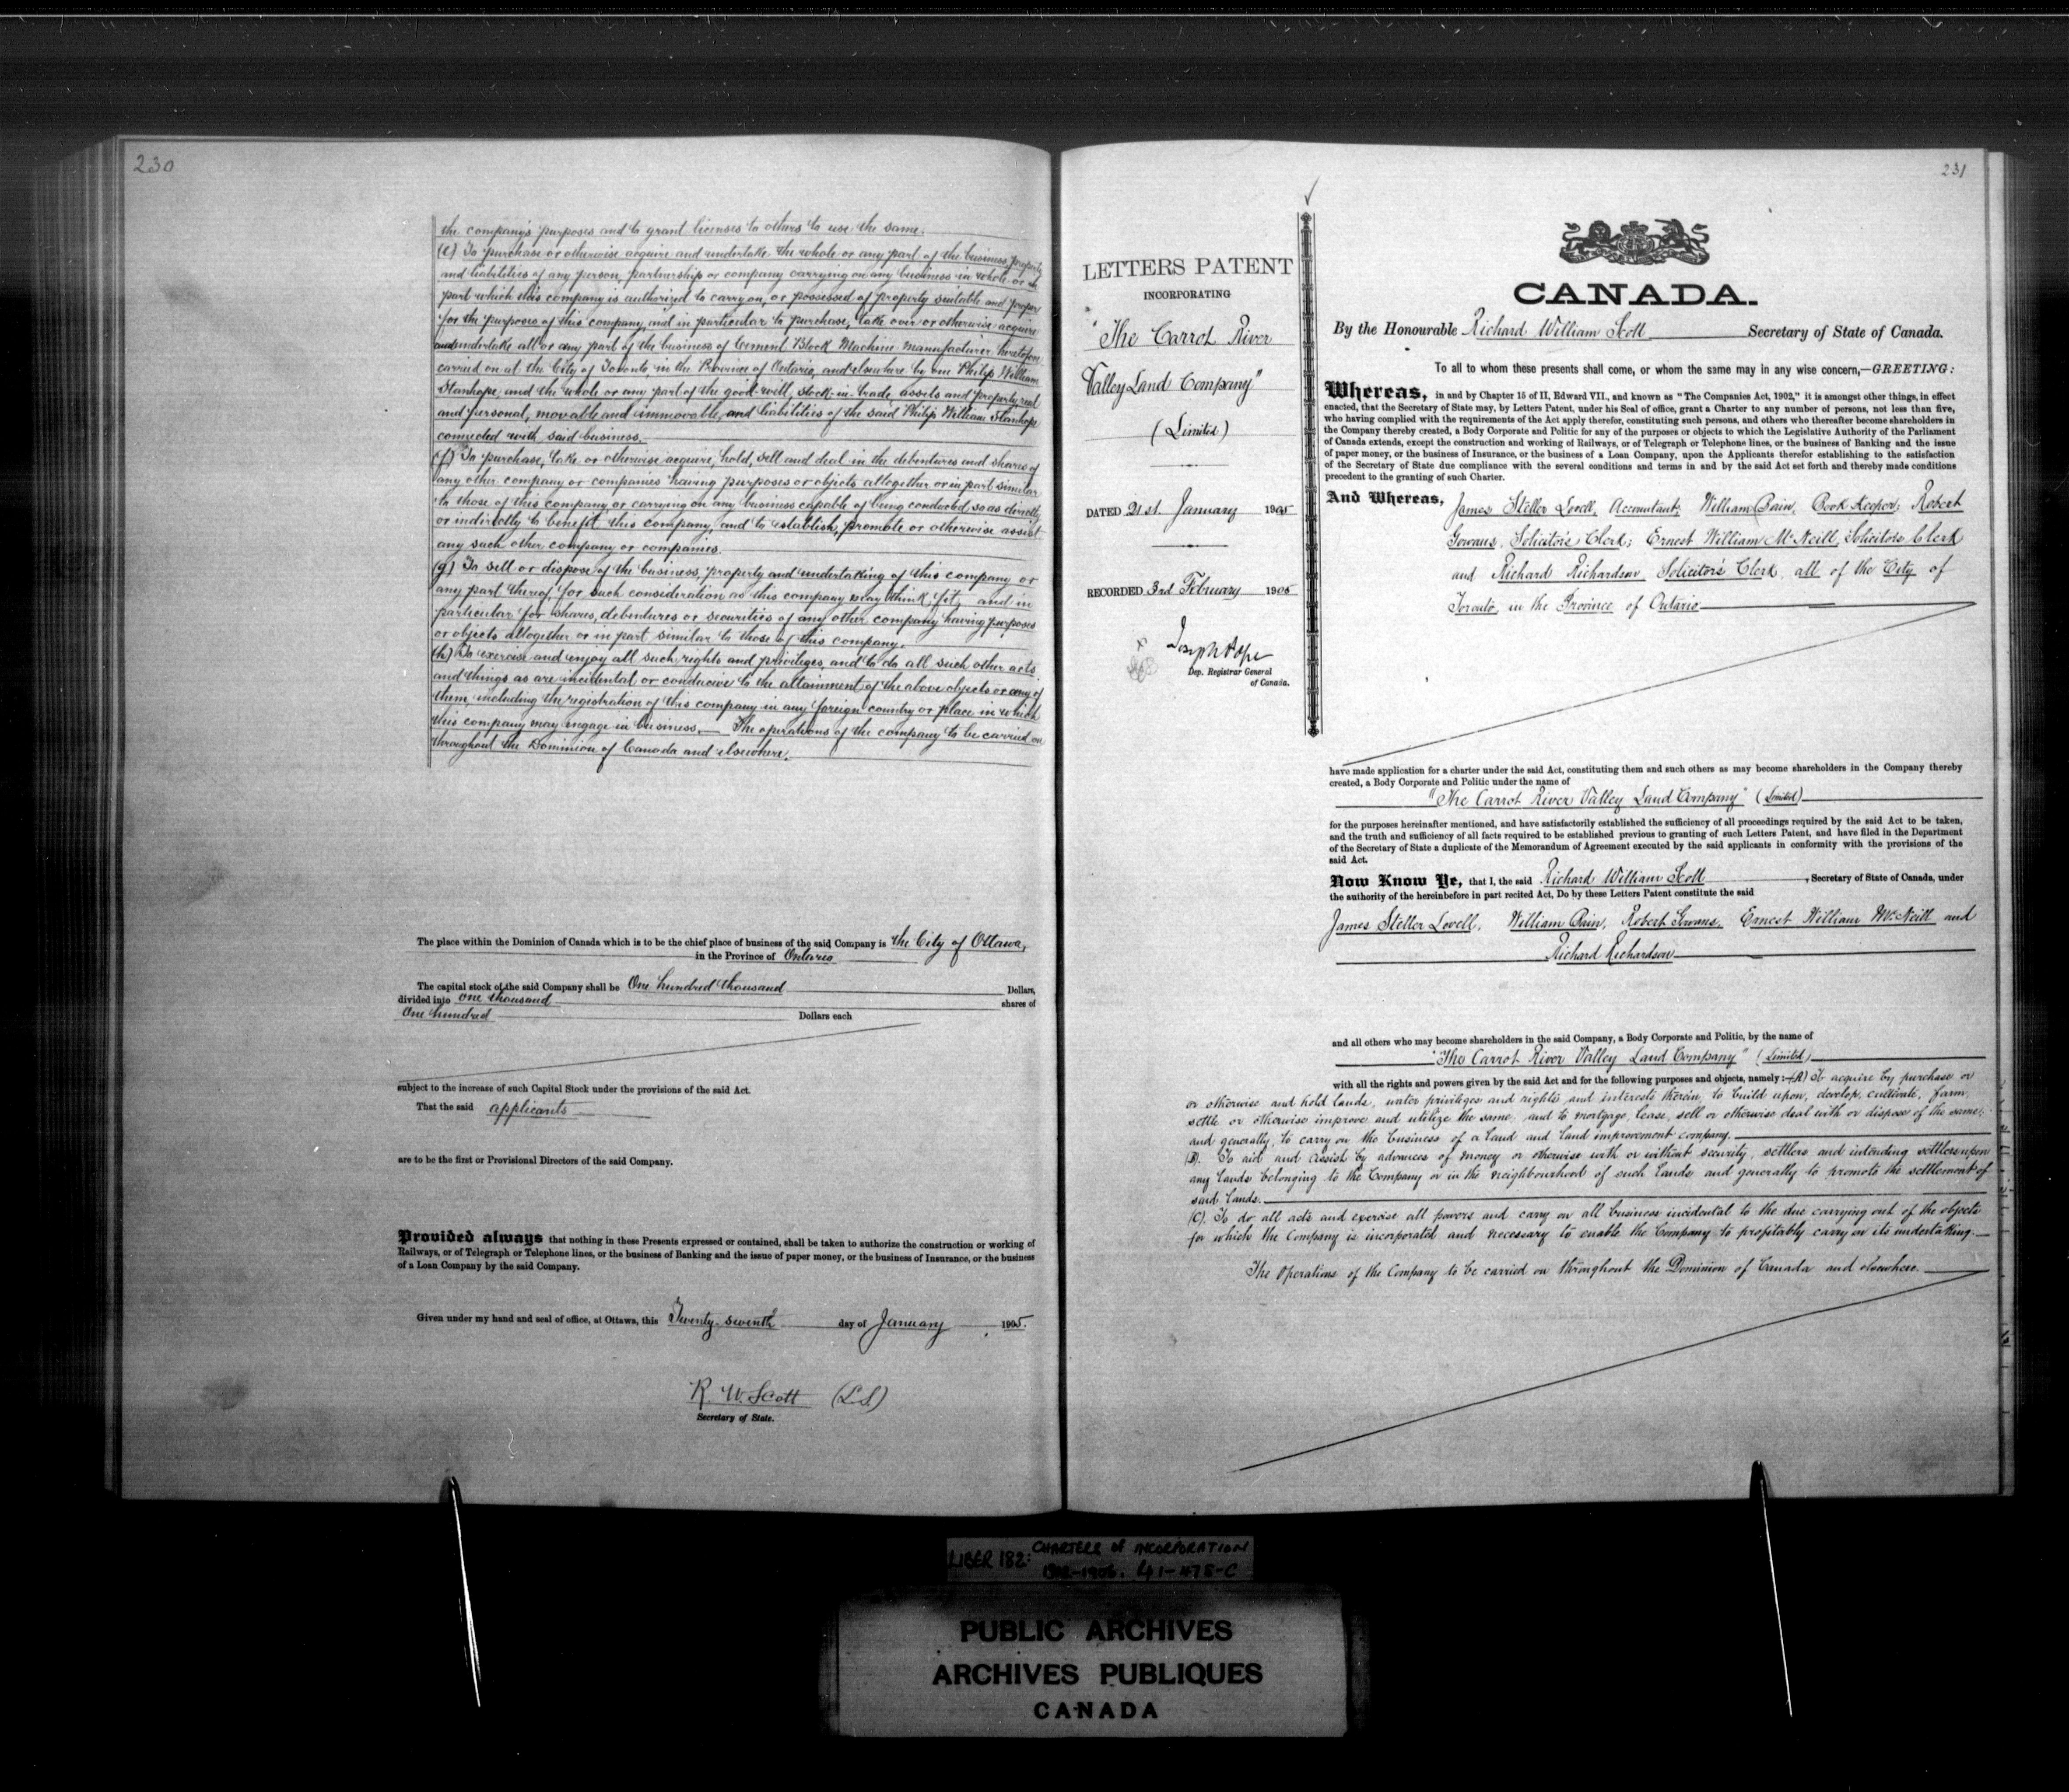 230
the company's purposes and to grant licenses to others to use the same.
(e) To purchase or otherwise acquire and undertake the whole or any part of the business, property
and liabilities of any person, partnership or company carrying on any business in whole or in
part which this company is authorized to carry on, or possessed of property suitable and proper
for the purposes of this company, and in particular to purchase, take over or otherwise acquire
and undertake all or any part of the business of Cement Block Machine manufacturer heretofore
carried on at the City of Toronto in the Province of Ontario, and elsewhere by one Philip William
Stanhope, and the whole or any part of the good-will, stock-in-trade, assets and property, real
and personal, movable and immovable, and liabilities of the said Philip William Stanhope
connected with said business.
(f) To purchase, take or otherwise acquire, hold, sell and deal in the debentures and shares of
any other company or companies having purposes or objects altogether or in part similar
to those of this company or carrying on any business capable of being conducted so as directly
or indirectly to benefit this company, and to establish, promote or otherwise assist
any such other company or companies.
(g) To sell or dispose of the business, property and undertaking of this company or
any part thereof, for such consideration as this company may think fit, and in
particular for shares, debentures or securities of any other company having purposes
or objects altogether or in part similar to those of this company.
(h) To exercise and enjoy all such rights and privileges, and to do all such other acts
and things as are incidental or conducive to the attainment of the above objects or any of
them, including the registration of this company in any foreign country or place in which
this company may engage in business. The operations of the company to be carried on
throughout the Dominion of Canada and elsewhere.
The place within the Dominion of Canada which is to be the chief place of business of the said Company is the City of Ottawa,
in the Province of Ontario
The capital stock of the said Company shall be One hundred thousand Dollars,
divided into one thousand shares of
One hundred Dollars each
subject to the increase of such Capital Stock under the provisions of the said Act.
That the said applicants
are to be the first or Provisional Directors of the said Company.
Provided always that nothing in these Presents expressed or contained, shall be taken to authorize the construction or working of
Railways, or of Telegraph or Telephone lines, or the business of Banking and the issue of paper money, or the business of Insurance, or the business
of a Loan Company by the said Company.
Given under my hand and seal of office, at Ottawa, this Twenty-seventh day of January 1905.
R. W. Scott (L.S)
Secretary of State.
231
LETTERS PATENT
INCORPORATING
"The Carrot River
Valley Land Company"
(Limited)
DATED 21st January 1905
RECORDED 3rd February 1905
Joseph Pope
Dep. Registrar General
of Canada.
CANADA.
By the Honourable Richard William Scott Secretary of State of Canada.
To all to whom these presents shall come, or whom the same may in any wise concern,—GREETING:
Whereas, in and by Chapter 15 of II, Edward VII., and known as "The Companies Act, 1902," it is amongst other things, in effect
enacted, that the Secretary of State may, by Letters Patent, under his Seal of office, grant a Charter to any number of persons, not less than five,
who having complied with the requirements of the Act apply therefor, constituting such persons, and others who thereafter become shareholders in
the Company thereby created, a Body Corporate and Politic for any of the purposes or objects to which the Legislative Authority of the Parliament
of Canada extends, except the construction and working of Railways, or of Telegraph or Telephone lines, or the business of Banking and the issue
of paper money, or the business of Insurance, or the business of a Loan Company, upon the Applicants therefor establishing to the satisfaction
of the Secretary of State due compliance with the several conditions and terms in and by the said Act set forth and thereby made conditions
precedent to the granting of such Charter.
And Whereas, James Steller Lovell, Accountant; William Bain, Book Keeper; Robert
Gowans, Solicitor's Clerk; Ernest William McNeill, Solicitors Clerk
and Richard Richardson Solicitor's Clerk, all of the City of
Toronto, in the Province of Ontario
have made application for a charter under the said Act, constituting them and such others as may become shareholders in the Company thereby
created, a Body Corporate and Politic under the name of
"The Carrot River Valley Land Company" (Limited)
for the purposes hereinafter mentioned, and have satisfactorily established the sufficiency of all proceedings required by the said Act to be taken,
and the truth and sufficiency of all facts required to be established previous to granting of such Letters Patent, and have filed in the Department
of the Secretary of State a duplicate of the Memorandum of Agreement executed by the said applicants in conformity with the provisions of the
said Act.
Now Know Ye, that I, the said Richard William Scott, Secretary of State of Canada, under
the authority of the hereinbefore in part recited Act, Do by these Letters Patent constitute the said
James Steller Lovell, William Bain, Robert Gowans, Ernest William McNeill and
Richard Richardson
and all others who may become shareholders in the said Company, a Body Corporate and Politic, by the name of
"The Carrot River Valley Land Company" (Limited)
with all the rights and powers given by the said Act and for the following purposes and objects, namely:—(A) To acquire by purchase or
or otherwise and hold lands, water privileges and rights and interests therein, to build upon, develop, cultivate, farm,
settle or otherwise improve and utilize the same, and to mortgage, lease, sell or otherwise deal with or dispose of the same;
and generally, to carry on the business of a land and land improvement company.
(B). To aid and assist by advances of money or otherwise with or without security, settlers and intending settlers upon
any lands belonging to the Company or in the neighbourhood of such lands and generally to promote the settlement of
said lands.
(C). To do all acts and exercise all powers and carry on all business incidental to the due carrying out of the objects
for which the Company is incorporated and necessary to enable the Company to profitably carry on its undertaking.
The Operations of the Company to be carried on throughout the Dominion of Canada and elsewhere.
LIBER 182: CHARTERS of INCORPORATION
PUBLIC ARCHIVES
ARCHIVES PUBLIQUES
CANADA